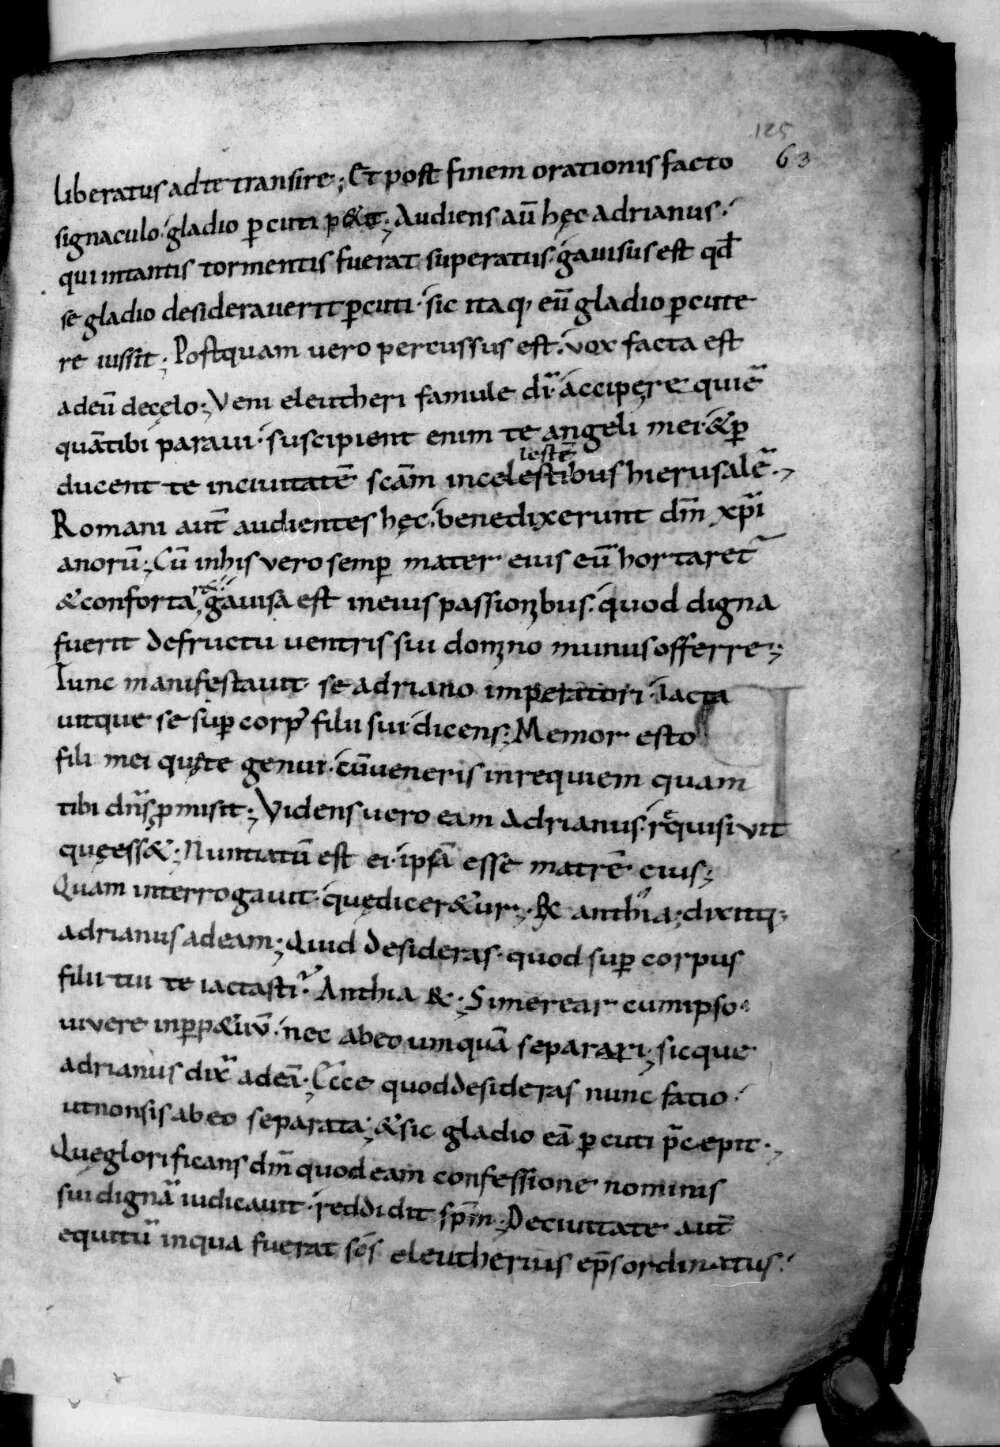 125
63
liberatus ad te transire; Et post finem orationis facto
signaculo· gladio ꝑcuti p&iit; Audiens aū hęc adrianus·
qui intantis tormentis fuerat superatus· gauisus est qđ
se gladio desiderauerit ꝑcuti· sic itaq, eū gladio ꝑcute
re iussit; Postquam uero percussus est· vox facta est
adeū decęlo; Veni eleutheri famule dī· accipęre quiē
quātibi paraui· suscipient enim te angeli mei· &ꝑ
lestē
ducent te inciuitatē scām incelestibus hierusalē·,
Romani aut̄ audientes hęc· benedixerunt dm̄ xp̄i
anorū; Cū inhis vero semꝑ mater eius eū hortaret̄
&conforta, gauisa est ineius passionibus· quod digna
fuerit defructu uentris sui domino munus offerre;
Tunc manifestauit se adriano imperatori· iacta
uitque se suꝑ corp' filii sui· dicens; Memor esto
fili mei quęte genui· cūueneris inrequiem quam
tibi dn̄s ꝓmisit; Videns uero eam adrianus· requisi vit
quęess&; Nuntiatū est ei· ipsā esse matrē eius;
Quam interrogauit· quędicer&ur; R& anthia; dixitq;
adrianus adeam; Quid desideras· quod suꝑ corpus
filii tui te iactasti· Anthia R&· Simerear cumipso·
uivere inꝑp&uū· nec abeo umquā separari; sicque
adrianus dix̄ adeā· Ecce quoddesideras nunc fatio·
utnonsis abeo separata; &sic gladio eā ꝑcuti p̄cepit·,
Quęglorificans dm̄ quod eam confessione nominis
sui dignā iudicauit· reddidit sp̄m; Deciuitate aut̄
equitū inqua fuerat sc̄s eleutherius ep̄s ordinatus·